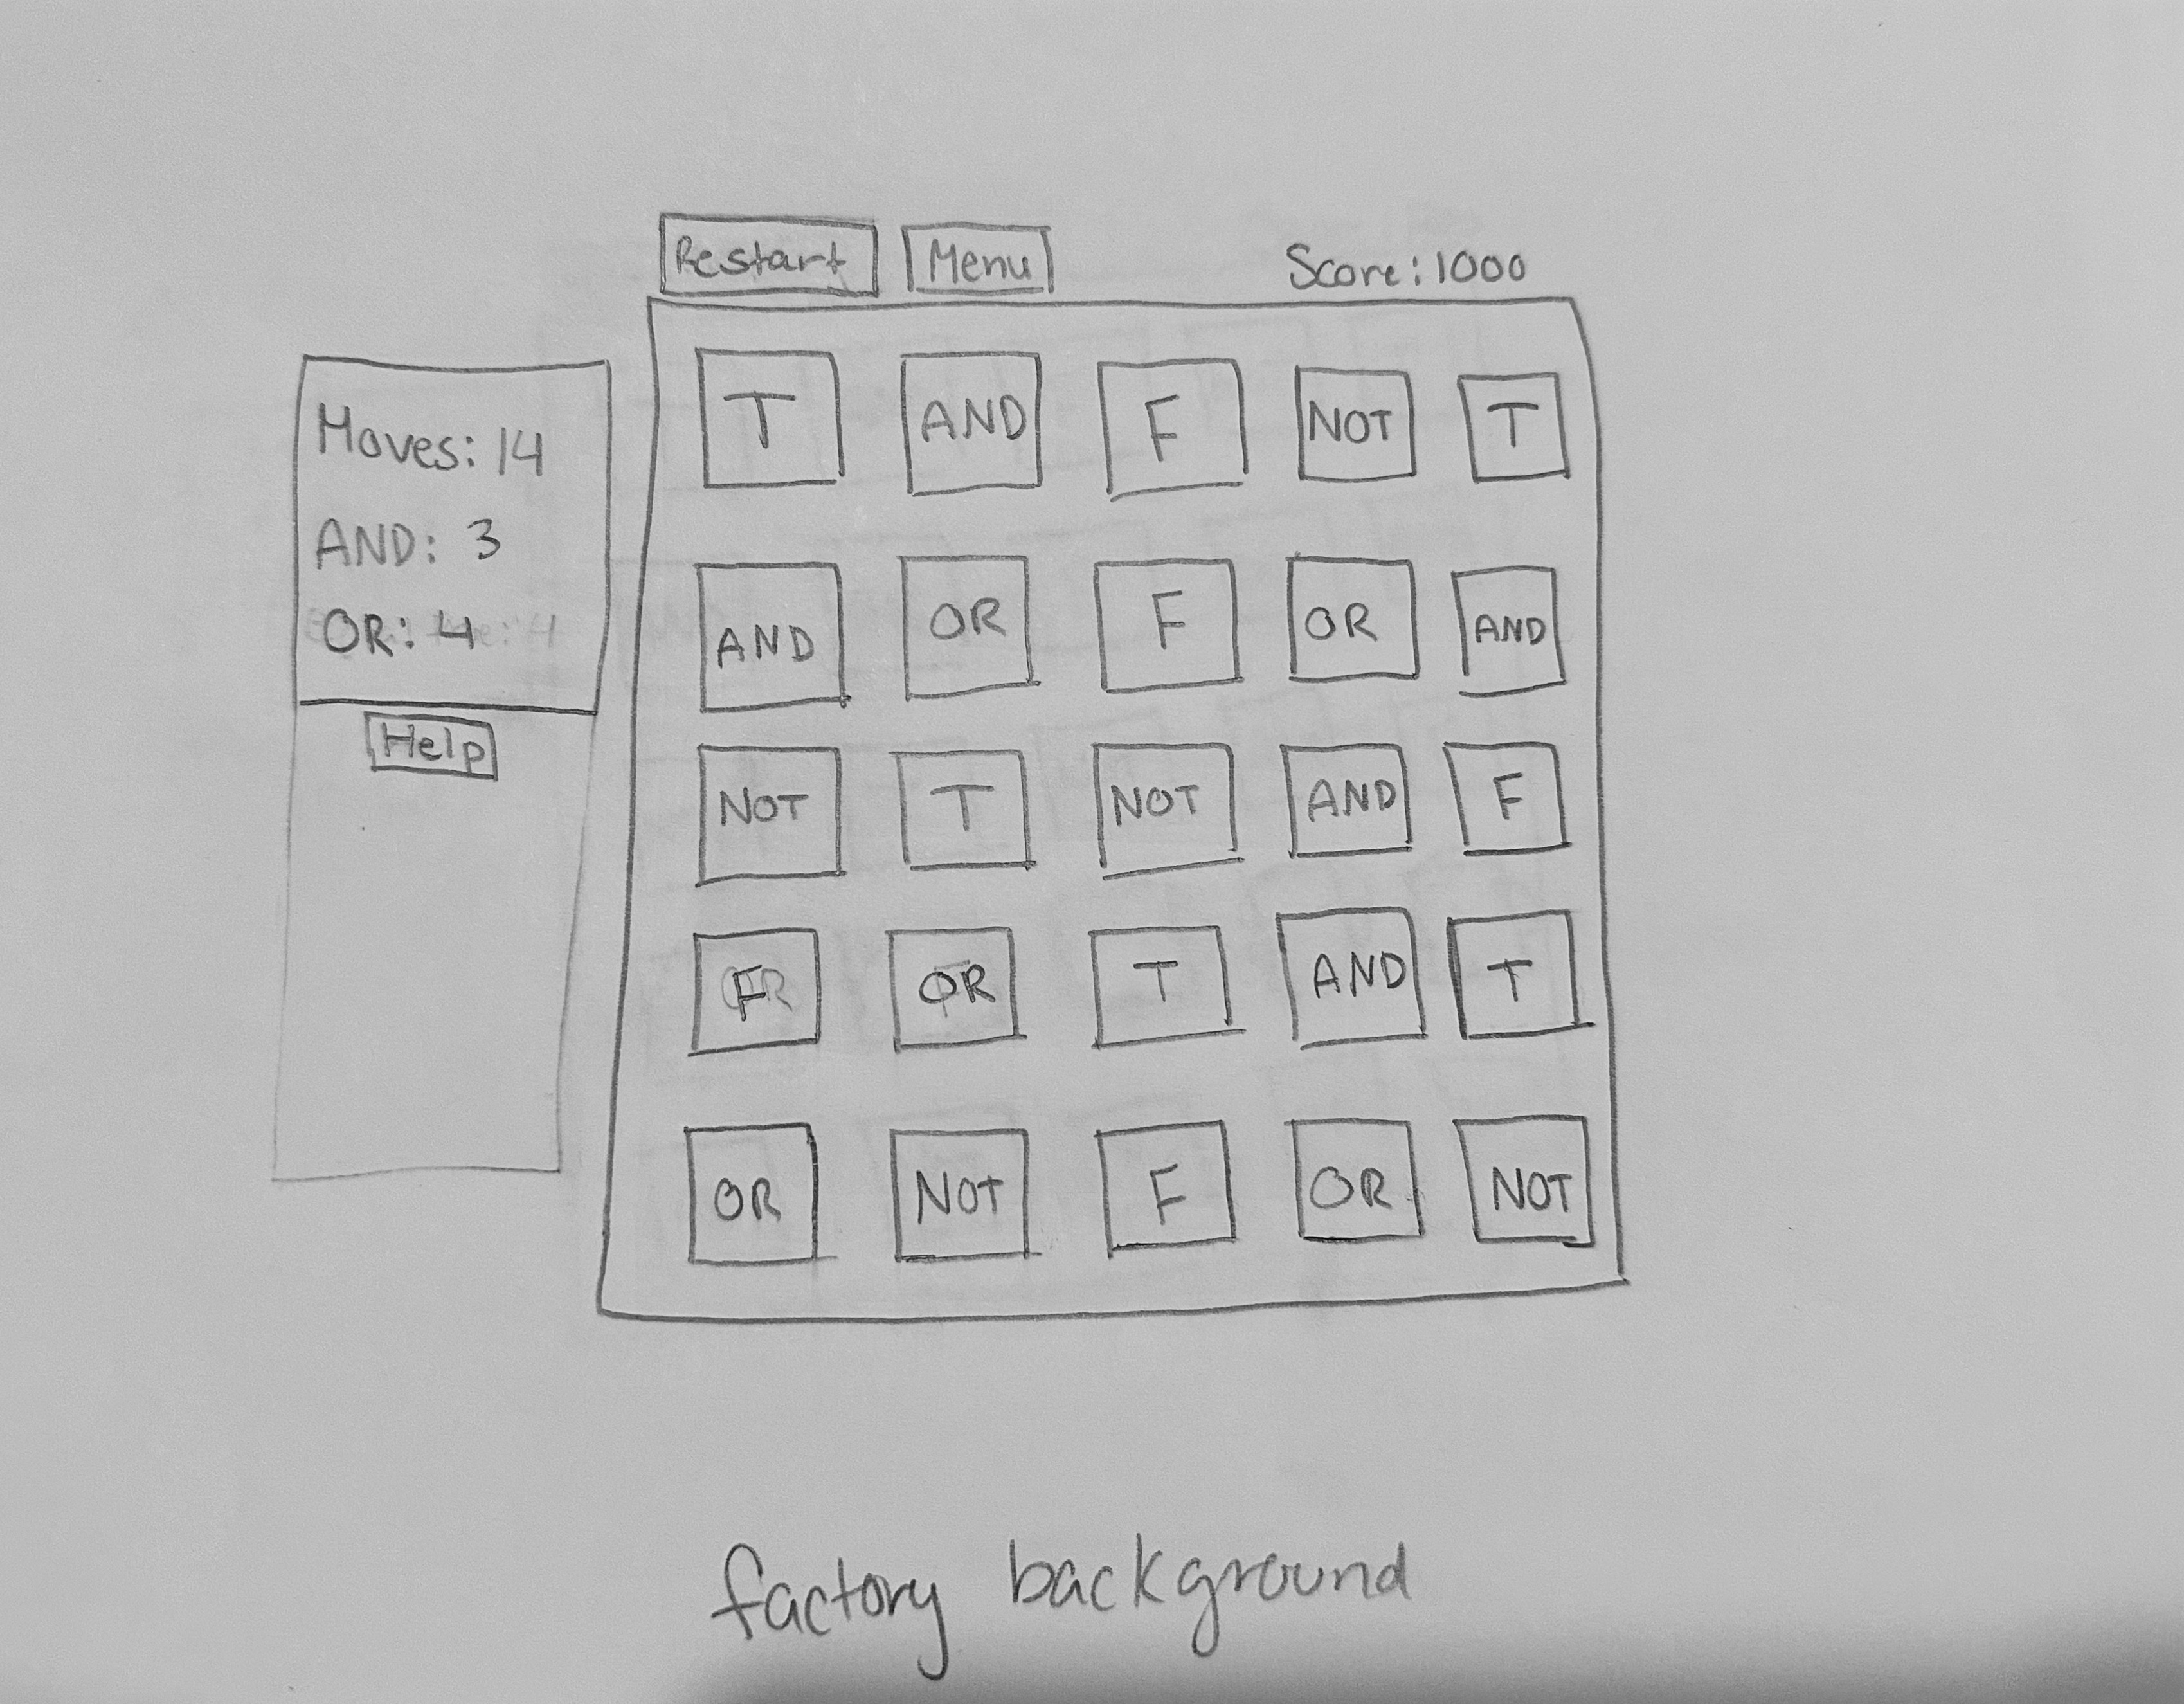 Restart Menu Score: 1000
Moves: 14
AND: 3
OR: 4
Help
T AND F NOT T
AND OR F OR AND
NOT T NOT AND F
F OR T AND T
OR NOT F OR NOT
factory background